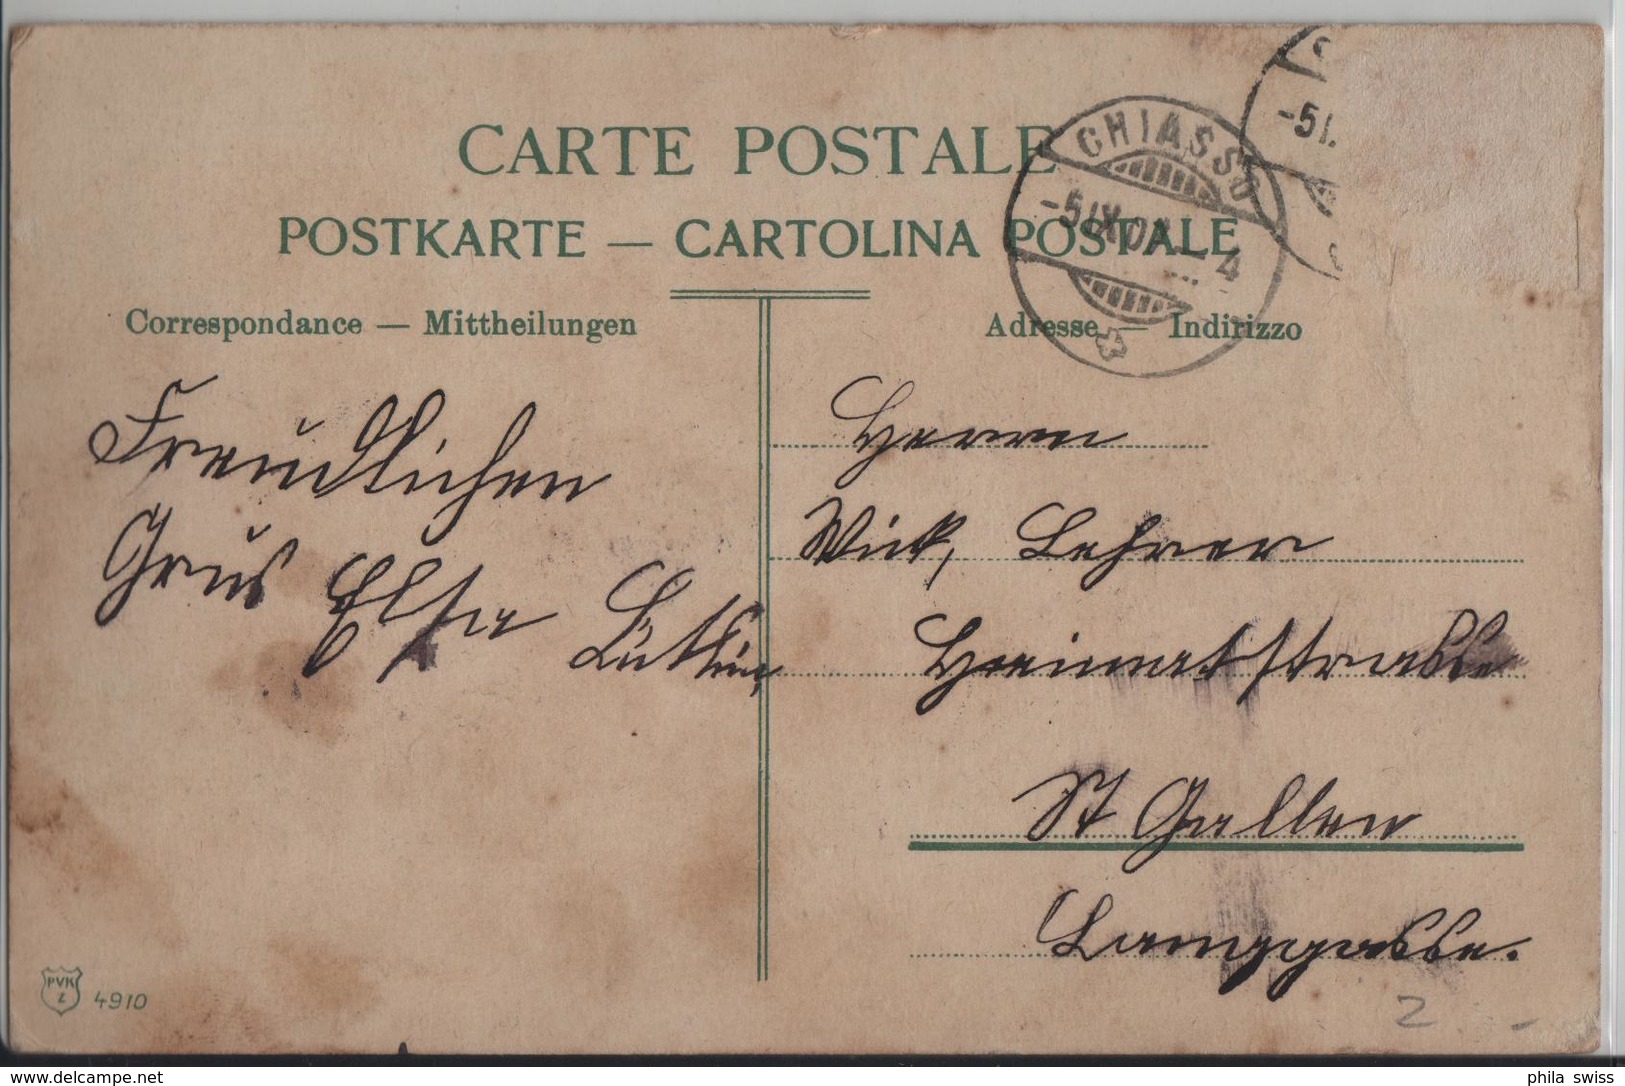 CARTE POSTALE
POSTKARTE — CARTOLINA POSTALE
Correspondance — Mittheilungen
Adresse — Indirizzo
CHIASSO
-5 IX 07 — 4
-5 I.
Freundlichen
Grus Elsa
Herrn
Wick, Lehrer
Heimatstrasse
St Gallen
Langgasse.
PVK
Z
4910
2
phila swiss